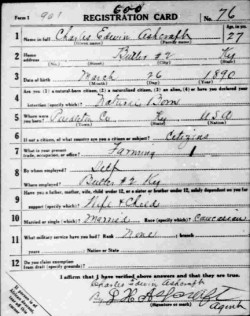 Form 1 901 600 No. 76
REGISTRATION CARD
1 Name in full Charles Edwin Ashcraft Age, in yrs. 27
(Given name) (Family name)
2 Home address Butler #2 Ky
(No.) (Street) (City) (State)
3 Date of birth March 26 1890
(Month) (Day) (Year)
4 Are you (1) a natural-born citizen, (2) a naturalized citizen, (3) an alien, (4) or have you declared your
intention (specify which)? Natural Born
5 Where were you born? Pendleton Co. Ky USA
(Town) (State) (Nation)
6 If not a citizen, of what country are you a citizen or subject? Citizens
7 What is your present trade, occupation, or office? Farming
8 By whom employed? Self
Where employed? Butler #2 Ky
9 Have you a father, mother, wife, child under 12, or a sister or brother under 12, solely dependent on you for
support (specify which)? Wife & Child
10 Married or single (which)? Married Race (specify which)? Caucasian
11 What military service have you had? Rank None branch
years Nation or State
12 Do you claim exemption from draft (specify grounds)?
I affirm that I have verified above answers and that they are true.
Charles Edwin Ashcraft
By Agent